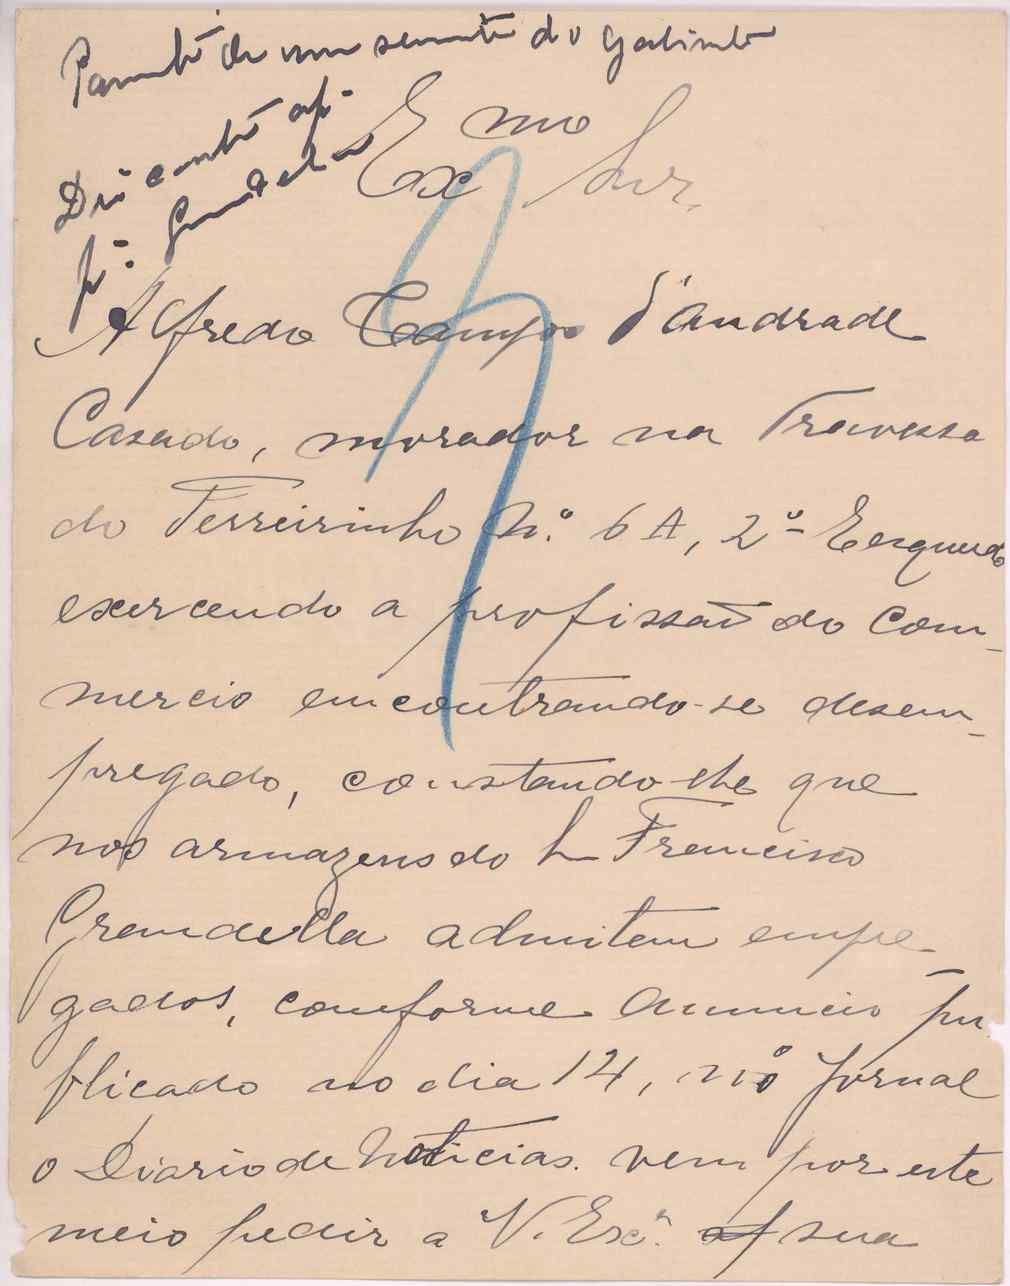 do Gabinete
Exmo Snr.
Alfredo Campos d'Andrade
Casado, morador na Travessa
do Ferreirinho Nº. 6 A, 2º Esquerdo
exercendo a profissão do Com-
mercio encontrando-se desem-
pregado, constando-lhe que
nos armazens do Sr Francisco
Grandella admitem empe-
gados, conforme anuncio pu-
blicado no dia 14, no Jornal
o Diario de Noticias. vem por este
meio pedir a V. Excª. sua